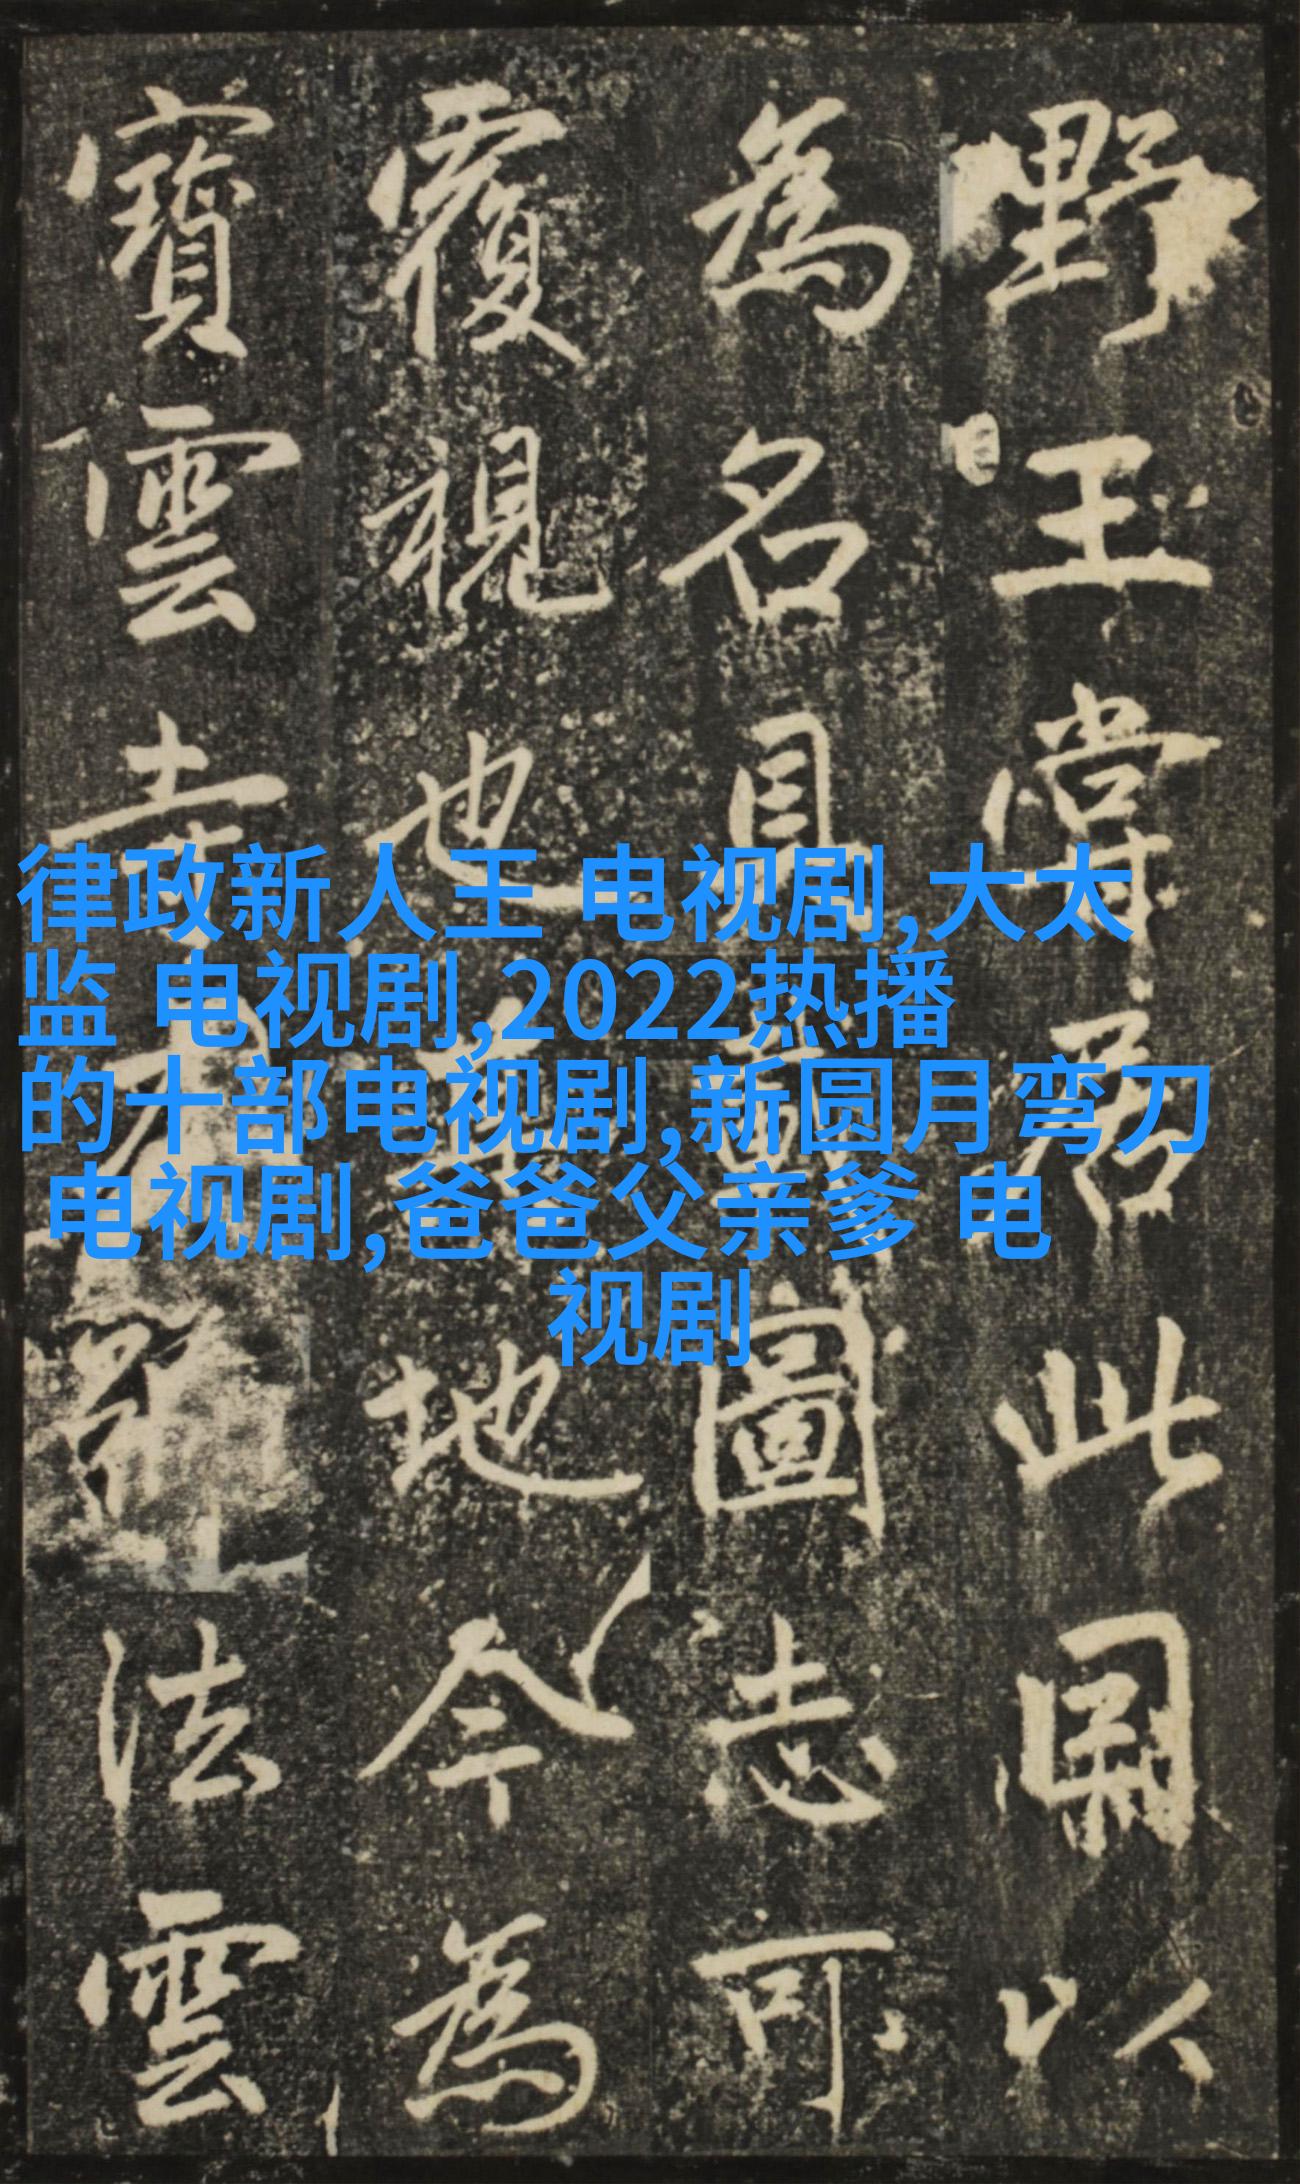 野王嘗居此以
為名具圖志可
覆視也地今為
寶雲寺法雲
律政新人王 电视剧,大太
监 电视剧,2022热播
的十部电视剧,新圆月弯刀
电视剧,爸爸父亲爹 电
视剧